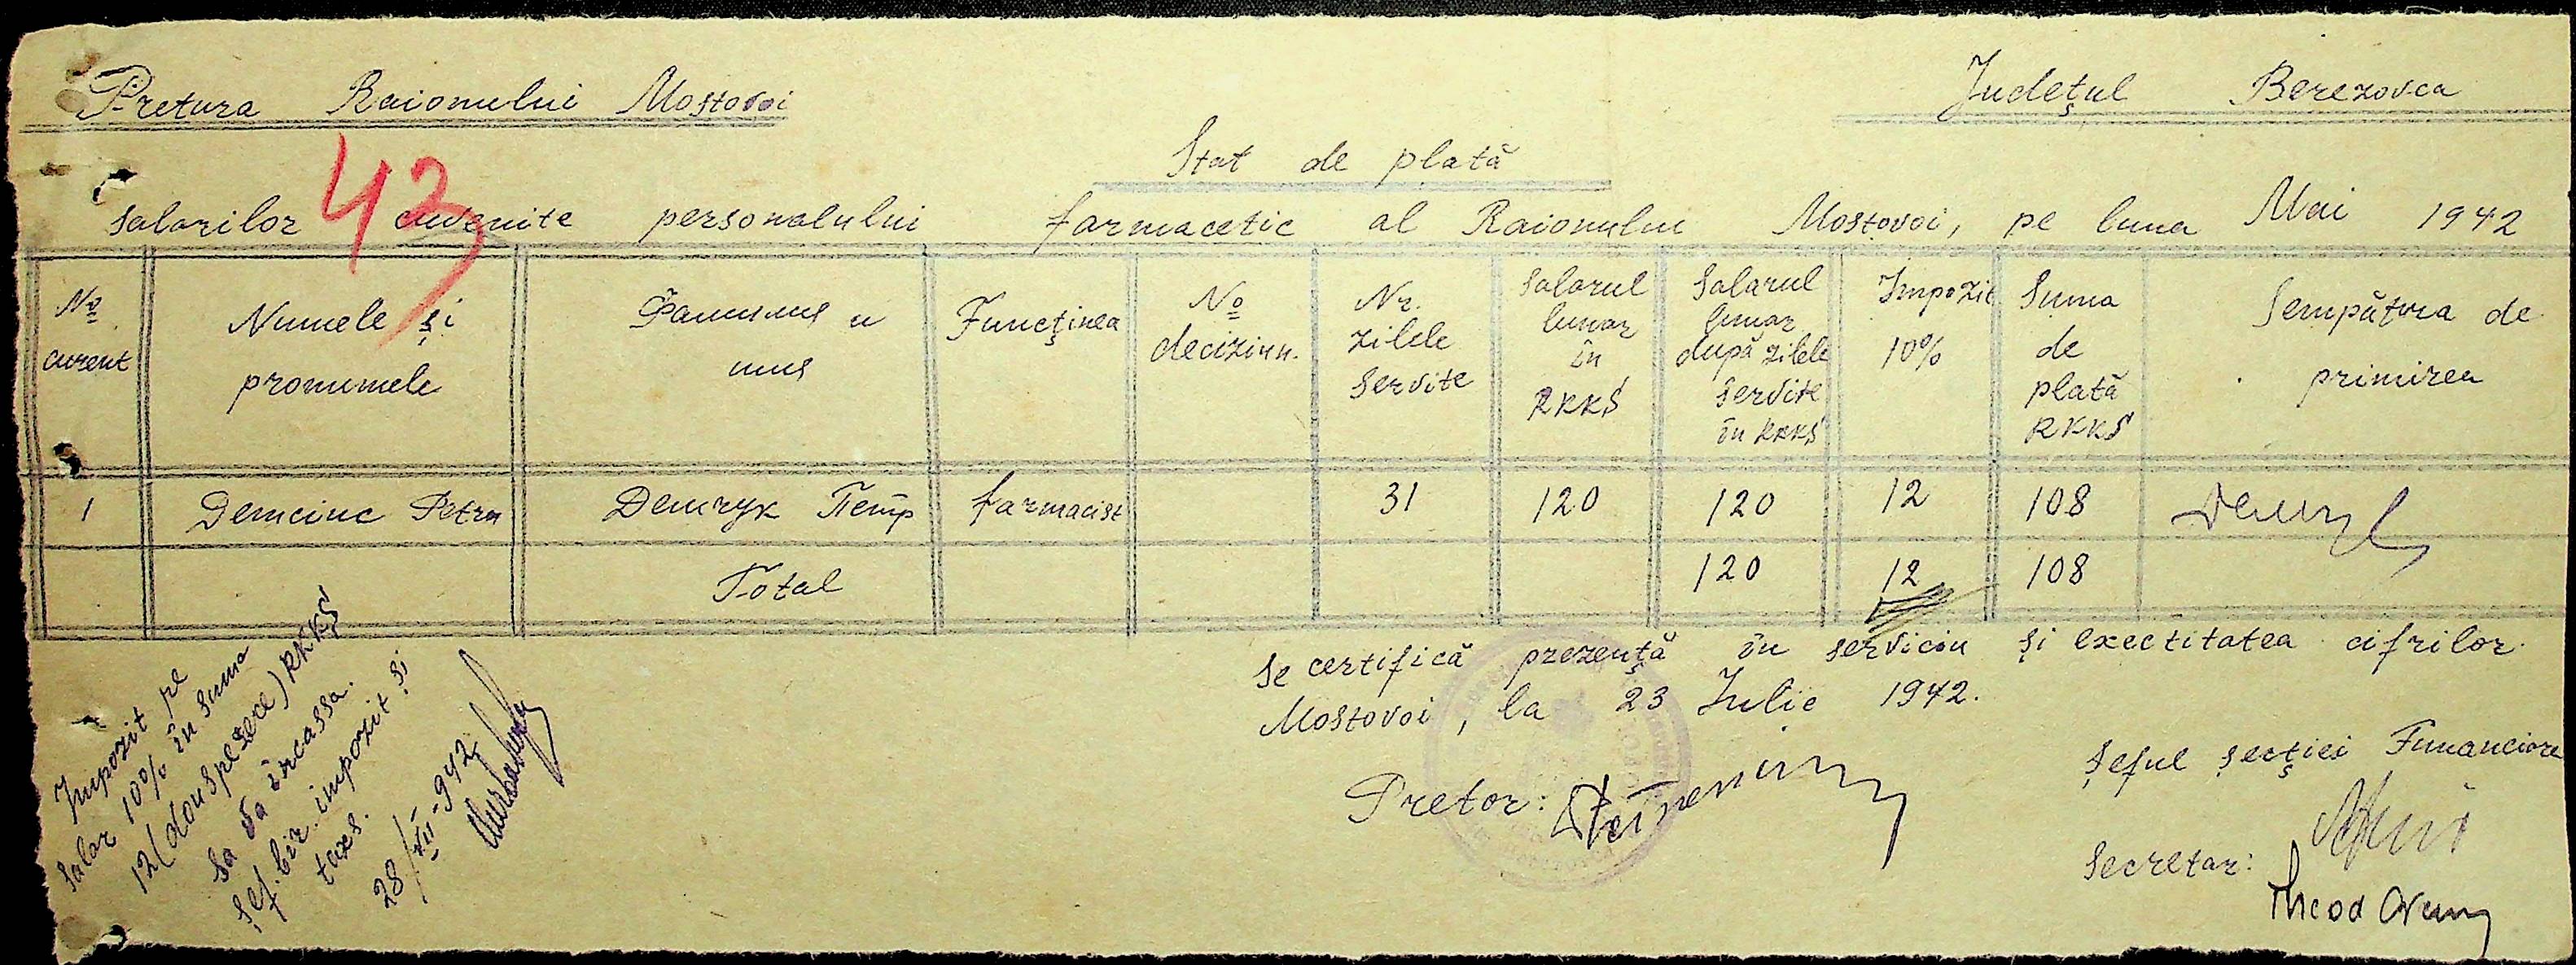 Pretura Raionului Mostovoi
Județul Berezovca
Stat de plată
43
Salarilor cuvenite personalului farmacetic al Raionului Mostovoi, pe luna Mai 1942
No curent
Numele și pronumele
Фамилия и имя
Funcținea
No deciziun.
Nr. zilele servite
Salarul lunar în RKKS
Salarul lunar după zilele servite în RKKS
Impozit 10%
Suma de plată RKKS
Sempătura de primirea
1 Demciuc Petru Демчук Петр farmacist 31 120 120 12 108
Total 120 12 108
Se certifică prezență în serviciu și exectitatea cifrilor.
Mostovoi, la 23 Iulie 1942.
Pretor:
Șeful secției Financiare
Secretar:
Theod
Impozit pe
salar 10% în suma
12 (douspezece) RKKS
Sa va încassa.
șef. bir. impozit și
taxe.
28/VII-942